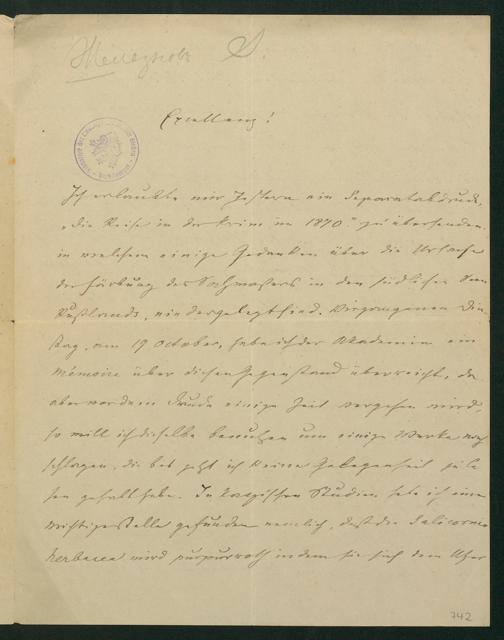 Excellenz!
Ich erlaubte mir gestern ein Separatabdruck,
"die Reise in der Krim im 1870" zu übersenden
in welchem einige Gedanken über die Ursache
der Färbung des Salzwassers in den südlichen Seen
Rußlands, niedergelegt sind. Vergangenen Dien-
stag, am 19 October, habe ich der Akademie ein
Mémoire über diesen Gegenstand überreicht, da
aber vor dem Druck einige Zeit vergehen wird,
so will ich dieselbe benutzen um einige Werke nach
schlagen, die bis jetzt ich keine Gelegenheit zu le-
sen gehabt habe. In kaspischen Studien habe ich eine
wichtige Stelle gefunden nemlich, daß die Salicornia
herbacea wird purpurroth indem sie sich dem Ufer
742